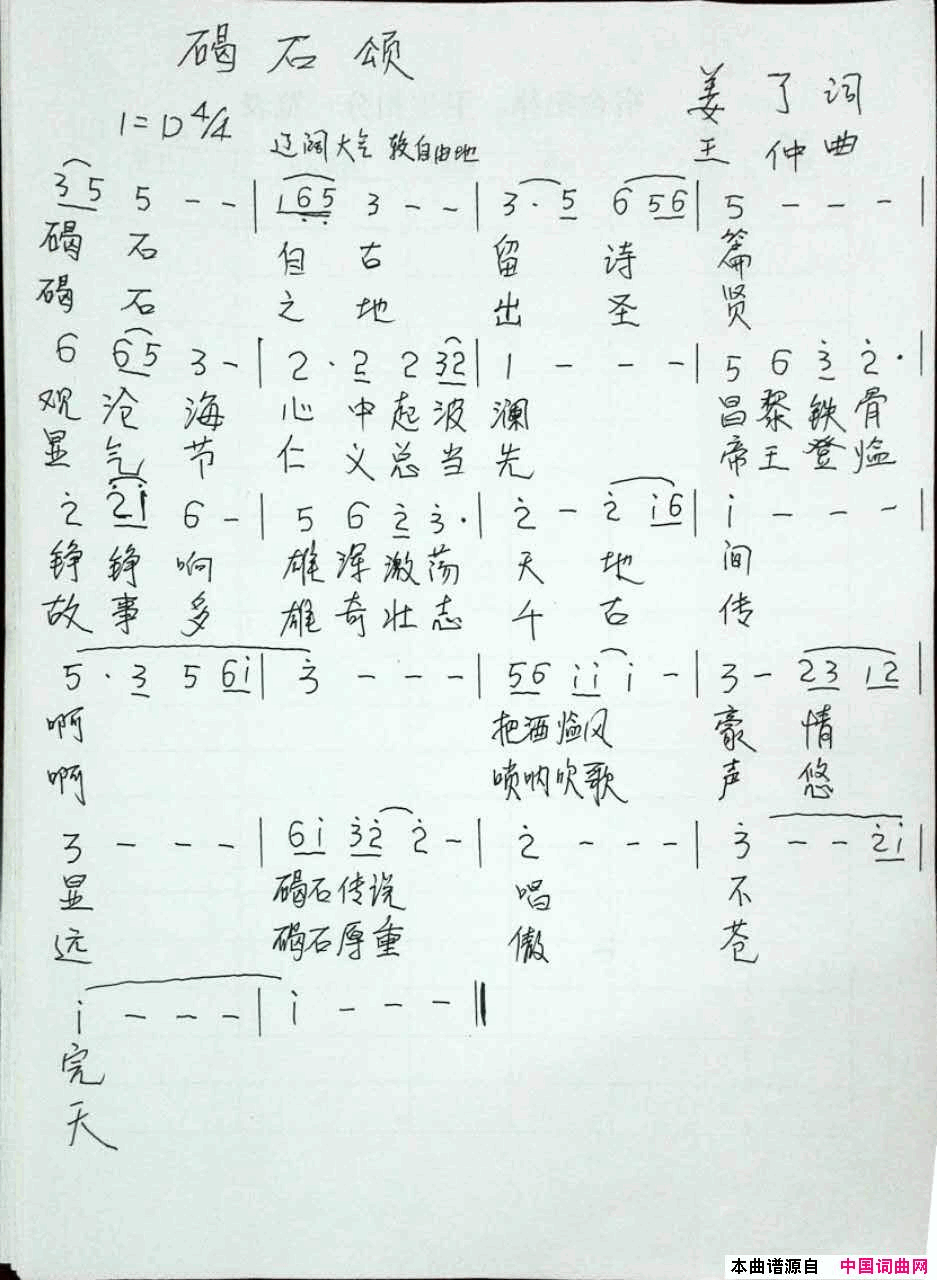 碣石颂
姜了词
1=D 4/4
辽阔大气 较自由地
王仲曲
3 5 5 - - | 1 6 5 3 - - | 3 · 5 6 5 6 | 5 - - - |
碣 石 自 古 留 诗 篇
碣 石 之 地 出 圣 贤
6 6 5 3 - | 2 · 2 2 3 2 | 1 - - - | 5 6 3̇ 2̇ · |
观 沧 海 心 中 起 波 澜 昌 黎 铁 骨
显 气 节 仁 义 总 当 先 帝 王 登 临
2̇ 2̇ 1̇ 6 - | 5 6 2̇ 3̇ · | 2̇ - 2̇ 1̇ 6 | 1̇ - - - |
铮 铮 响 雄 浑 激 荡 天 地 间
故 事 多 雄 奇 壮 志 千 古 传
5 · 3 5 6 1̇ | 3̇ - - - | 5 6 1̇ 1̇ 1̇ - | 3 - 2 3 1 2 |
啊 把酒临风 豪 情
啊 唢呐吹歌 声 悠
3 - - - | 6 1̇ 3̇ 2̇ 2̇ - | 2̇ - - - | 3̇ - - 2̇ 1̇ |
显 碣石传说 唱 不
远 碣石厚重 傲 苍
1̇ - - - | 1̇ - - - ‖
完
天
本曲谱源自 中国词曲网